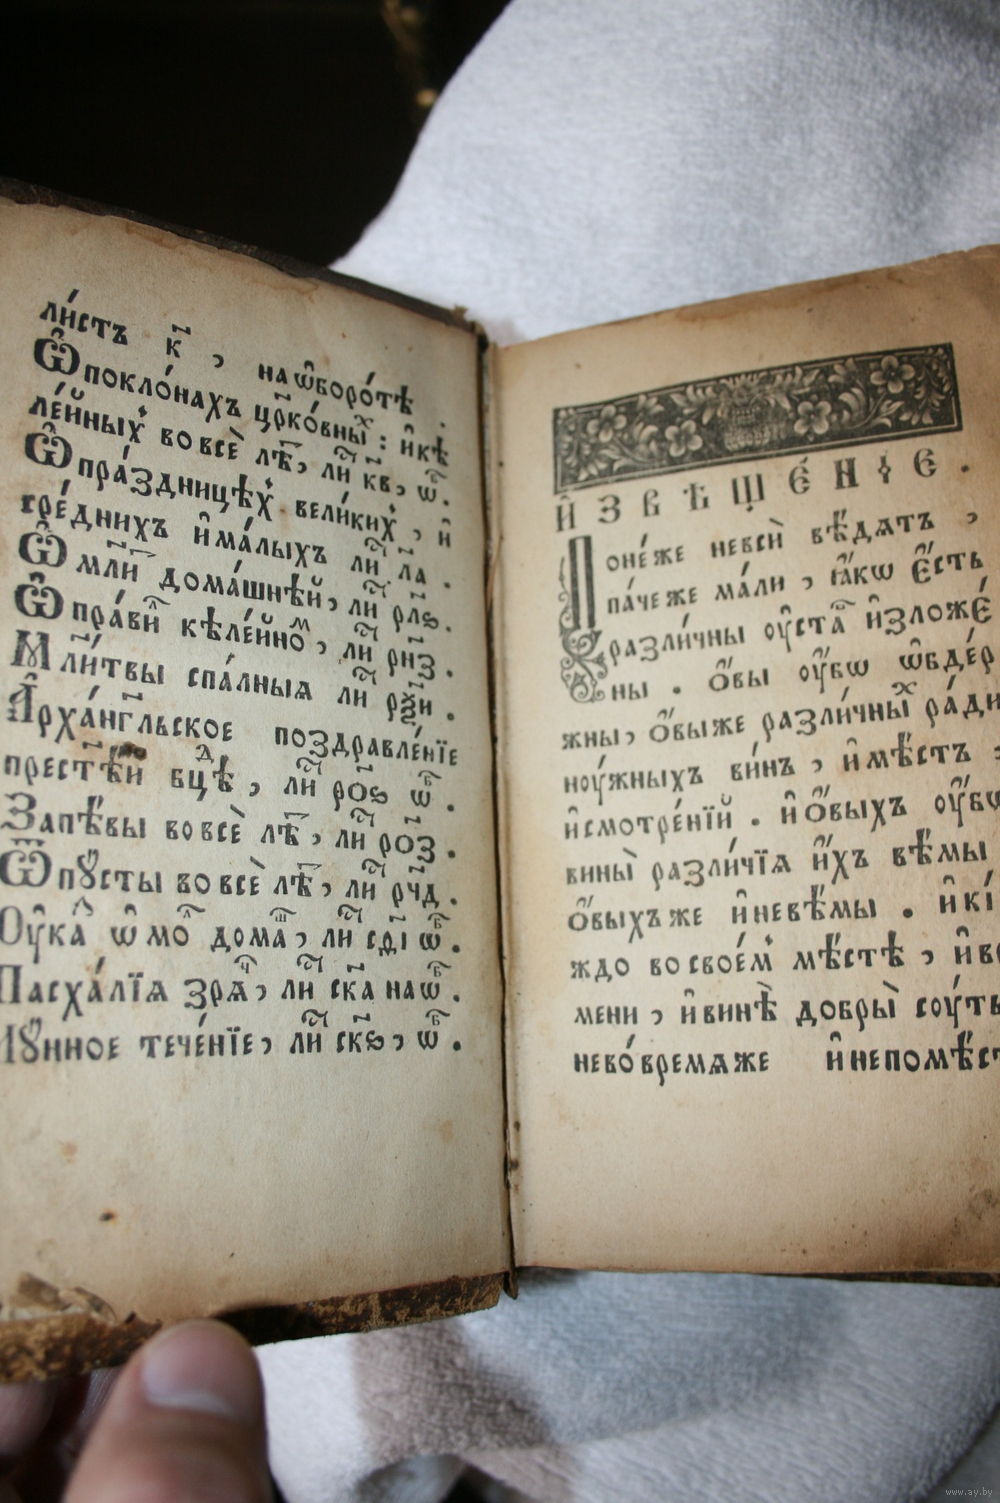 ли́стъ к҃, наѡ҆боро́тѣ.
Ѡ҆ покло́нахъ цр҃ко́вныⷯ: и҆ кѣ
ле́йныⷯ во всѐ лѣⷮ, лиⷭ҇ к҃в, ѡ҆ⷠ.
Ѡ҆ пра́здницѣⷯ вели́киⷯ, и҆
сре́днихъ и҆ ма́лыхъ лиⷭ҇ л҃а.
Ѡ҆ мл҃тⷡ домашнѣй, лиⷭ҇
Ѡ҆ пра́виⷧ кѣле́йноⷨ, лиⷭ҇ рн҃з.
Мл҃и́твы спа́лныѧ лиⷭ҇ рѯ҃и.
А҆рха́нг҃льское поздравле́нїе
прест҃ѣ́й бц҃ѣⷣ, лиⷭ҇ ро҃ѕ ѡ҆ⷠ.
Запѣ́вы во всѐ лѣⷮ, лиⷭ҇ ро҃з.
Ѿпꙋ́сты во всѐ лѣⷮ, лиⷭ҇ рч҃д.
Оу҆каⷥ ѡ҆ моⷧ домаⷲ, лиⷭ҇ ѡ҆ⷠ.
Пасха́лїѧ зрѧⷱ, лиⷭ҇ ск҃а на ѡ҆ⷠ.
Лꙋ́нное тече́нїе, лиⷭ҇ ск҃ѕ, ѡ҆ⷠ.
И҆ЗВѢЩЕ́НЇЕ.
Поне́же не всѝ вѣ́дѧтъ,
па́че же ма́ли, ꙗ҆́кѡ є҆́сть
разли́чны оу҆стаⷡ и҆зложе́
ны. ѻ҆́вы оу҆́бѡ ѡ҆бде́р
жны, ѻ҆́вы же разли́чныⷯ ра́ди
ноу́жныхъ ви́нъ, и҆ мѣ́стъ:
и҆ смотре́нїй. и҆ ѻ҆́выхъ оу҆́бѡ
вины̀ разли́чїѧ и҆́хъ вѣ́мы
ѻ҆́выхъ же и҆ не вѣ́мы. и҆ кі́
ждо во свое́мъ мѣ́стѣ, и҆ вр
мени, и҆ винѣ̀ добры̀ соу́ть
не во́ времѧ же и҆ не по мѣ́ст
www.ay.by